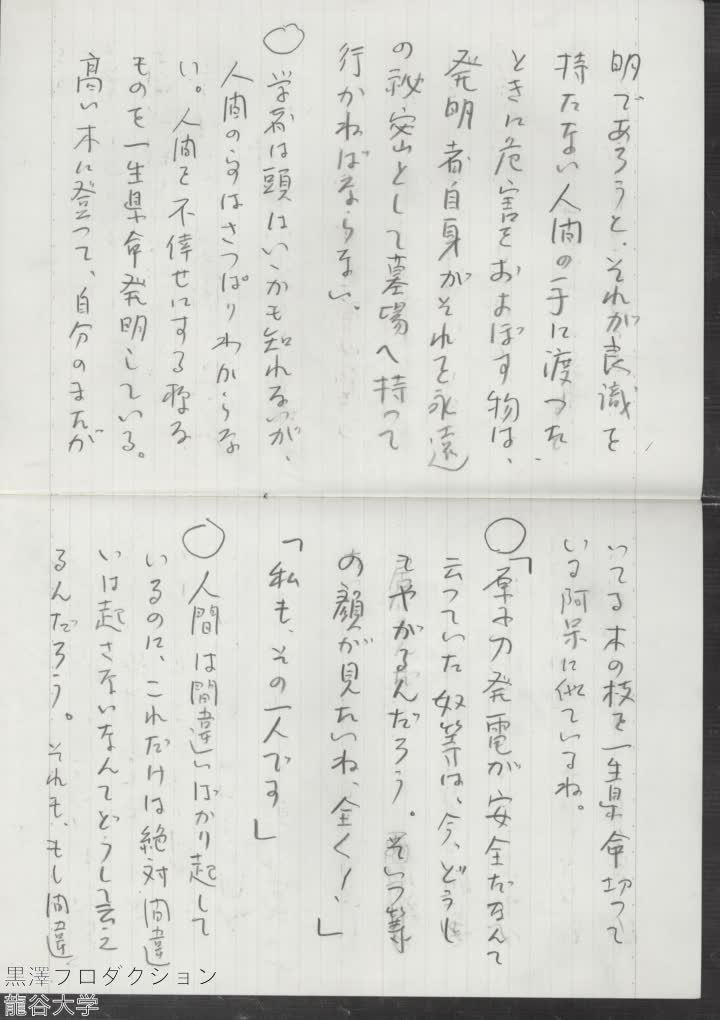 明であろうと、それが良識を
持たない人間の手に渡った
ときに危害をおよぼす物は、
発明者自身がそれを永遠
の秘密として墓場へ持って
行かねばならない、
○ 学者は頭はいゝかも知れないが、
人間の事はさっぱりわからな
い。人間を不倖せにする様な
ものを一生県命発明している。
高い木に登って、自分のまたが
いてる木の枝を一生県命切って
いる阿呆に似ているね。
○ 「原子力発電が安全だなんて
云っていた奴等は、今、どうし
てやがるんだろう。そいつ等
の顔が見たいね、全く！」
「私も、その一人です」
○ 人間は間違いばかり起して
いるのに、これだけは絶対間違
いは起さないなんてどうして云え
るんだろう。それも、もし間違
黒澤プロダクション
龍谷大学